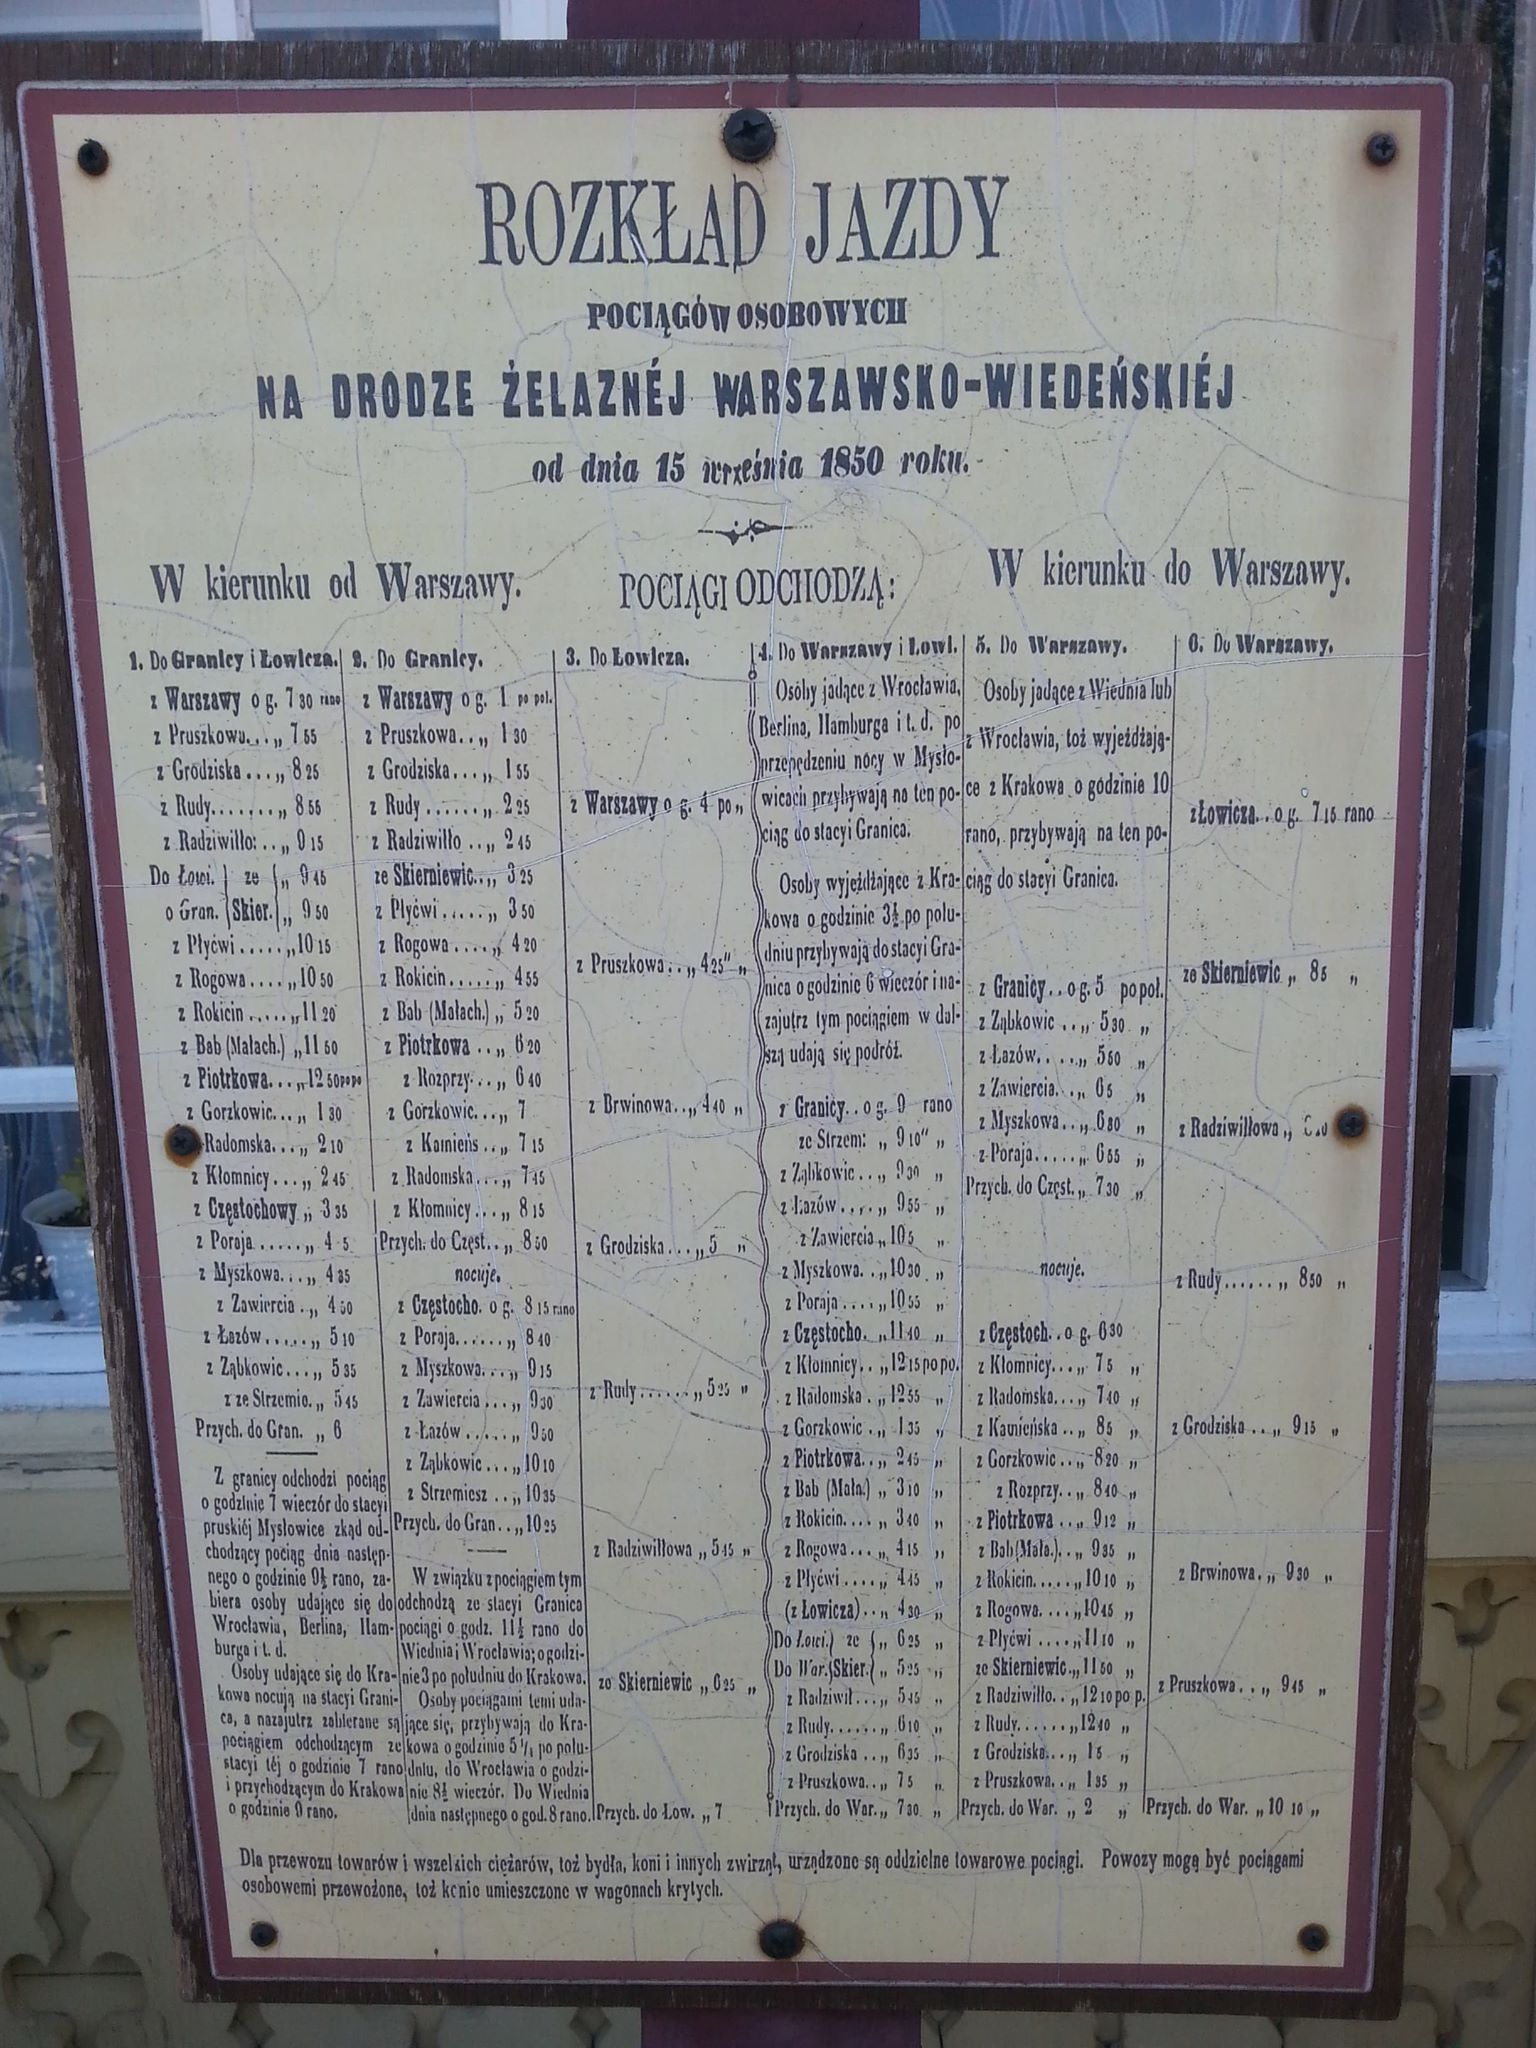 ROZKŁAD JAZDY
POCIĄGÓW OSOBOWYCH
NA DRODZE ŻELAZNÉJ WARSZAWSKO-WIEDEŃSKIÉJ
od dnia 15 września 1850 roku.
W kierunku od Warszawy.
POCIĄGI ODCHODZĄ:
W kierunku do Warszawy.
1. Do Granicy i Łowicza.
z Warszawy o g. 7 30 rano
z Pruszkowa... „ 7 55
z Grodziska ... „ 8 25
z Rudy....... „ 8 55
z Radziwiłło: .. „ 9 15
Do Łowi. } ze { „ 9 45
o Gran. } Skier. { „ 9 50
z Płyćwi ..... „ 10 15
z Rogowa .... „ 10 50
z Rokicin ..... „ 11 20
z Bab (Małach.) „ 11 50
z Piotrkowa... „ 12 50 po po
z Gorzkowic... „ 1 30
Radomska... „ 2 10
z Kłomnicy ... „ 2 45
z Częstochowy „ 3 35
z Poraja ..... „ 4 5
z Myszkowa... „ 4 35
z Zawiercia .. „ 4 50
z Łazów ..... „ 5 10
z Ząbkowic... „ 5 35
z ze Strzemie. „ 5 45
Przych. do Gran. „ 6
Z granicy odchodzi pociąg
o godzinie 7 wieczór do stacyi
pruskiéj Mysłowice zkąd od-
chodzący pociąg dnia następ-
nego o godzinie 9½ rano, za-
biera osoby udające się do
Wrocławia, Berlina, Ham-
burga i t. d.
Osoby udające się do Kra-
kowa nocują na stacyi Grani-
ca, a nazajutrz zabierane są
pociągiem odchodzącym ze
stacyi téj o godzinie 7 rano
i przychodzącym do Krakowa
o godzinie 9 rano.
2. Do Granicy.
z Warszawy o g. 1 po poł.
z Pruszkowa .. „ 1 30
z Grodziska... „ 1 55
z Rudy ...... „ 2 25
z Radziwiłło .. „ 2 45
ze Skierniewic.. „ 3 25
z Płyćwi ..... „ 3 50
z Rogowa .... „ 4 20
z Rokicin ..... „ 4 55
z Bab (Małach.) „ 5 20
z Piotrkowa .. „ 6 20
z Rozprzy... „ 6 40
z Gorzkowic... „ 7
z Kamieńs .. „ 7 15
z Radomska... „ 7 45
z Kłomnicy ... „ 8 15
Przych. do Częst.. „ 8 50
nocuje.
z Częstocho. o g. 8 15 rano
z Poraja...... „ 8 40
z Myszkowa... „ 9 15
z Zawiercia ... „ 9 30
z Łazów ..... „ 9 50
z Ząbkowic... „ 10 10
z Strzemiesz .. „ 10 35
Przych. do Gran.. „ 10 25
W związku z pociągiem tym
odchodzą ze stacyi Granica
pociągi o godz. 11½ rano do
Wiednia i Wrocławia; o godzi-
nie 3 po południu do Krakowa.
Osoby pociągami temi uda-
jące się, przybywają do Kra-
kowa o godzinie 5 po połu-
dniu, do Wrocławia o godzi-
nie 8½ wieczór. Do Wiednia
dnia następnego o god. 8 rano.
3. Do Łowicza.
z Warszawy o g. 4 po „
z Pruszkowa .. „ 4 25" „
z Brwinowa.. „ 4 40 „
z Grodziska... „ 5 „
z Rudy ...... „ 5 25 „
z Radziwiłłowa „ 5 45 „
ze Skierniewic „ 6 25 „
Przych. do Łow. „ 7
4. Do Warszawy i Łowi.
Osóby jadące z Wrocławia,
Berlina, Hamburga i t. d. po
przepędzeniu nocy w Mysło-
wicach przybywają na ten po-
ciąg do stacyi Granica.
Osoby wyjeżdżające z Kra-
kowa o godzinie 3½ po połu-
dniu przybywają do stacyi Gra-
nica o godzinie 6 wieczór i na-
zajutrz tym pociągiem w dal-
szą udają się podróż.
z Granicy.. o g. 9 rano
ze Strzem: „ 9 10" „
z Ząbkowic... „ 9 30 „
z Łazów .... „ 9 55 „
z Zawiercia „ 10 5 „
z Myszkowa.. „ 10 30 „
z Poraja .... „ 10 55 „
z Częstocho. „ 11 40 „
z Kłomnicy .. „ 12 15 po po.
z Radomska .. „ 12 55 „
z Gorzkowic . „ 1 35 „
z Piotrkowa.. „ 2 45 „
z Bab (Mała.) „ 3 10 „
z Rokicin.... „ 3 40 „
z Rogowa... „ 4 15 „
z Płyćwi .... „ 4 45 „
(z Łowicza).. „ 4 30 „
Do Łowi. } ze { „ 6 25 „
Do War. } Skier. { „ 5 25 „
z Radziwił... „ 5 45 „
z Rudy...... „ 6 10 „
z Grodziska .. „ 6 35 „
z Pruszkowa.. „ 7 5 „
Przych. do War. „ 7 30 „
5. Do Warszawy.
Osoby jadące z Wiednia lub
z Wrocławia, toż wyjeżdżają-
ce z Krakowa o godzinie 10
rano, przybywają na ten po-
ciąg do stacyi Granica.
z Granicy.. o g. 5 po poł.
z Ząbkowic .. „ 5 30 „
z Łazów..... „ 5 50 „
z Zawiercia.. „ 6 5 „
z Myszkowa.. „ 6 30 „
z Poraja..... „ 6 55 „
Przych. do Częst. „ 7 30 „
nocuje.
z Częstoch. . o g. 6 30
z Kłomnicy... „ 7 5 „
z Radomska... „ 7 40 „
z Kamieńska .. „ 8 5 „
z Gorzkowic .. „ 8 20 „
z Rozprzy.. „ 8 40 „
z Piotrkowa .. „ 9 12 „
z Bab (Mała.).. „ 9 35 „
z Rokicin..... „ 10 10 „
z Rogowa.... „ 10 45 „
z Płyćwi .... „ 11 10 „
ze Skierniewic. „ 11 50 „
z Radziwiłło.. „ 12 10 po p.
z Rudy...... „ 12 40 „
z Grodziska... „ 1 5 „
z Pruszkowa.. „ 1 35 „
Przych. do War. „ 2 „
6. Do Warszawy.
z Łowicza.. o g. 7 15 rano
ze Skierniewic „ 8 5 „
z Radziwiłłowa „
z Rudy...... „ 8 50 „
z Grodziska .. „ 9 15 „
z Brwinowa. „ 9 30 „
z Pruszkowa.. „ 9 45 „
Przych. do War. „ 10 10 „
Dla przewozu towarów i wszelkich ciężarów, toż bydła, koni i innych zwirząt, urządzone są oddzielne towarowe pociągi. Powozy mogą być pociągami
osobowemi przewożone, toż konie umieszczone w wagonach krytych.